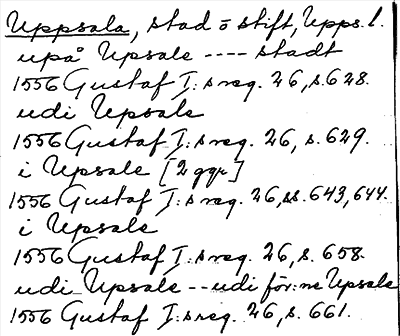 Uppsala, stad o stift, Upps. l.
upå Upsale ---- stadt
1556 Gustaf I:s reg. 26, s. 628.
udi Upsale
1556 Gustaf I:s reg. 26, s. 629.
i Upsale [2 ggr]
1556 Gustaf I:s reg. 26, ss. 643, 644.
i Upsale
1556 Gustaf I:s reg. 26, s. 658.
udi Upsale -- udi för:ne Upsale
1556 Gustaf I:s reg. 26, s. 661.